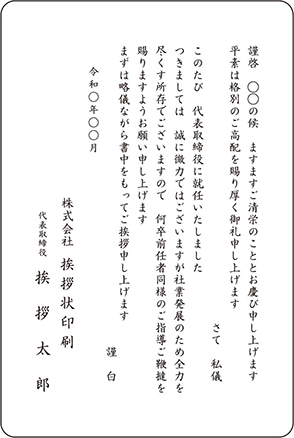 謹啓　○○の候　ますますご清栄のこととお慶び申し上げます
平素は格別のご高配を賜り厚く御礼申し上げます
さて　私儀
このたび　代表取締役に就任いたしました
つきましては　誠に微力ではございますが社業発展のため全力を
尽くす所存でございますので　何卒前任者同様のご指導ご鞭撻を
賜りますようお願い申し上げます
まずは略儀ながら書中をもってご挨拶申し上げます
謹　白
令和○年○○月
株式会社　挨拶状印刷
代表取締役　挨　拶　太　郎